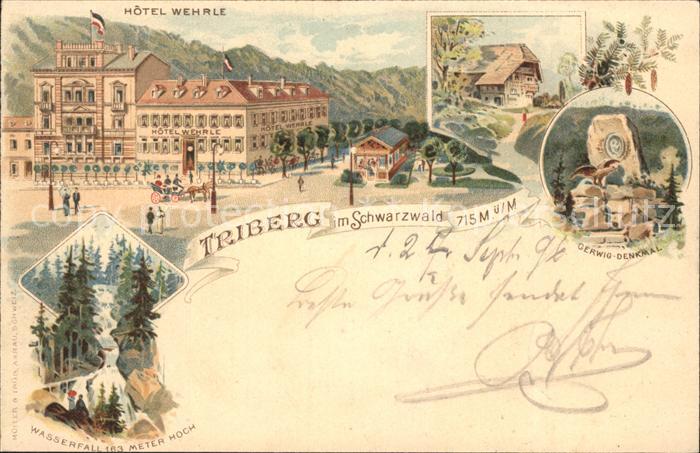 HÔTEL WEHRLE
HÔTEL WEHRLE
HÔTEL WEHRLE
TRIBERG im Schwarzwald 715 M ü/M
GERWIG-DENKMAL
d. 2 Sept. 96
Beste Grüße sendet
WASSERFALL 163 METER HOCH
MÜLLER & TRÜB, AARAU, SCHWEIZ